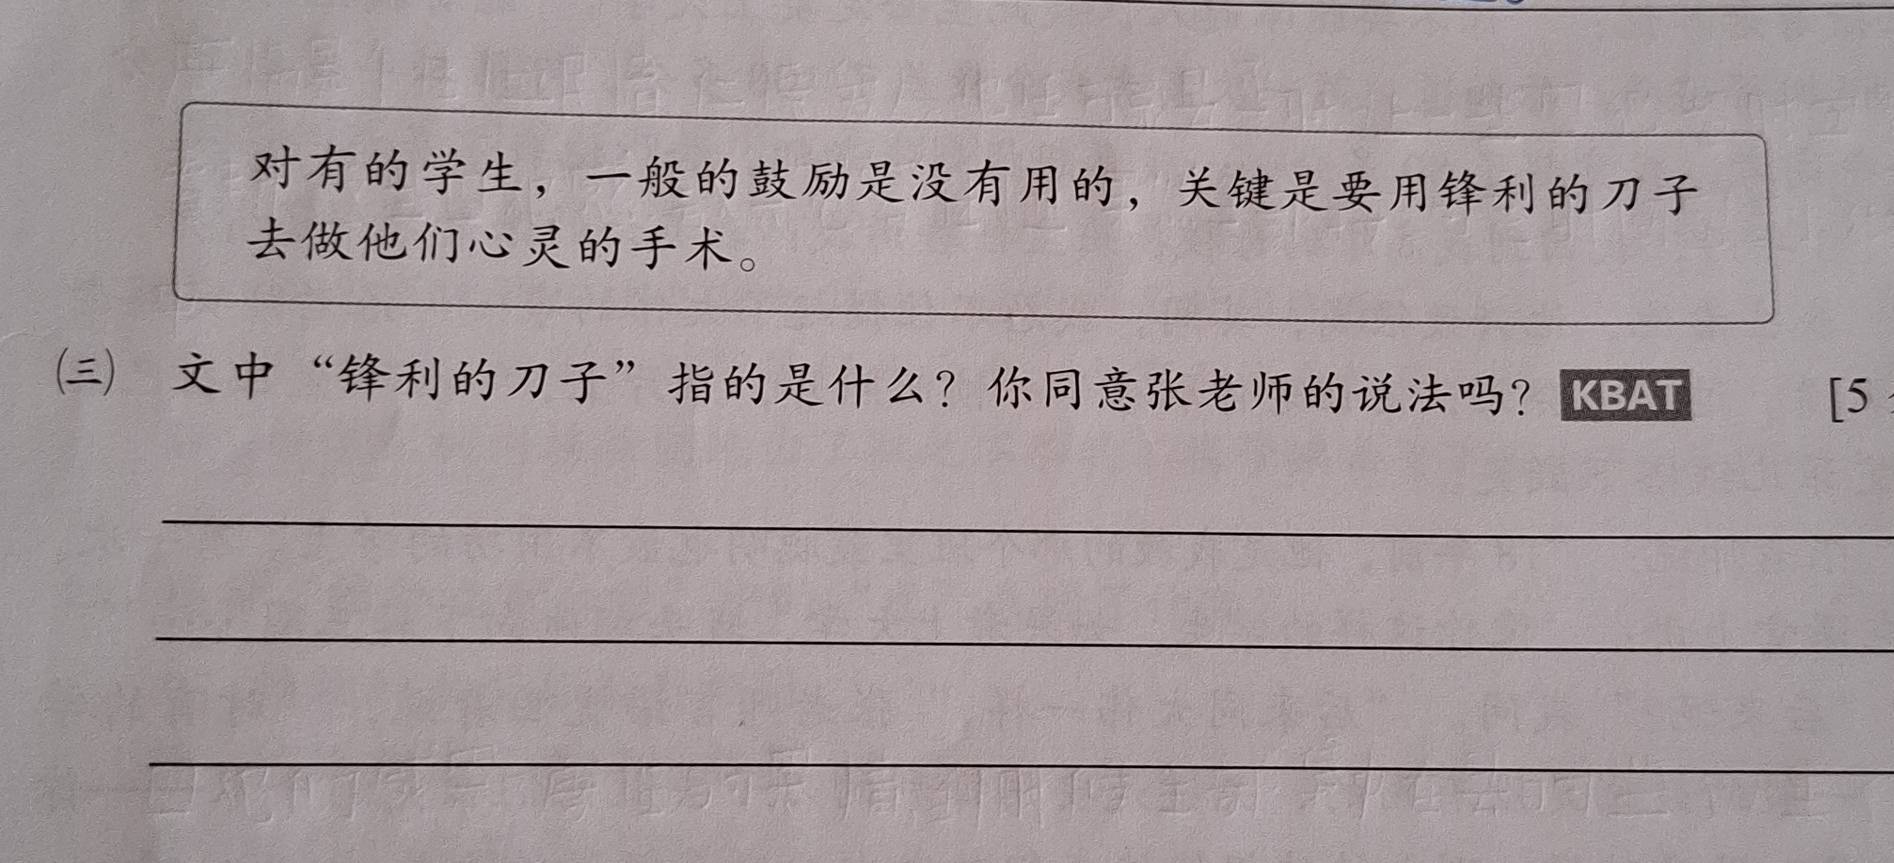 对有的学生，一般的鼓励是没有用的，关键是要用锋利的刀子
去做他们心灵的手术。
㈢ 文中“锋利的刀子”指的是什么？你同意张老师的说法吗？ KBAT [5